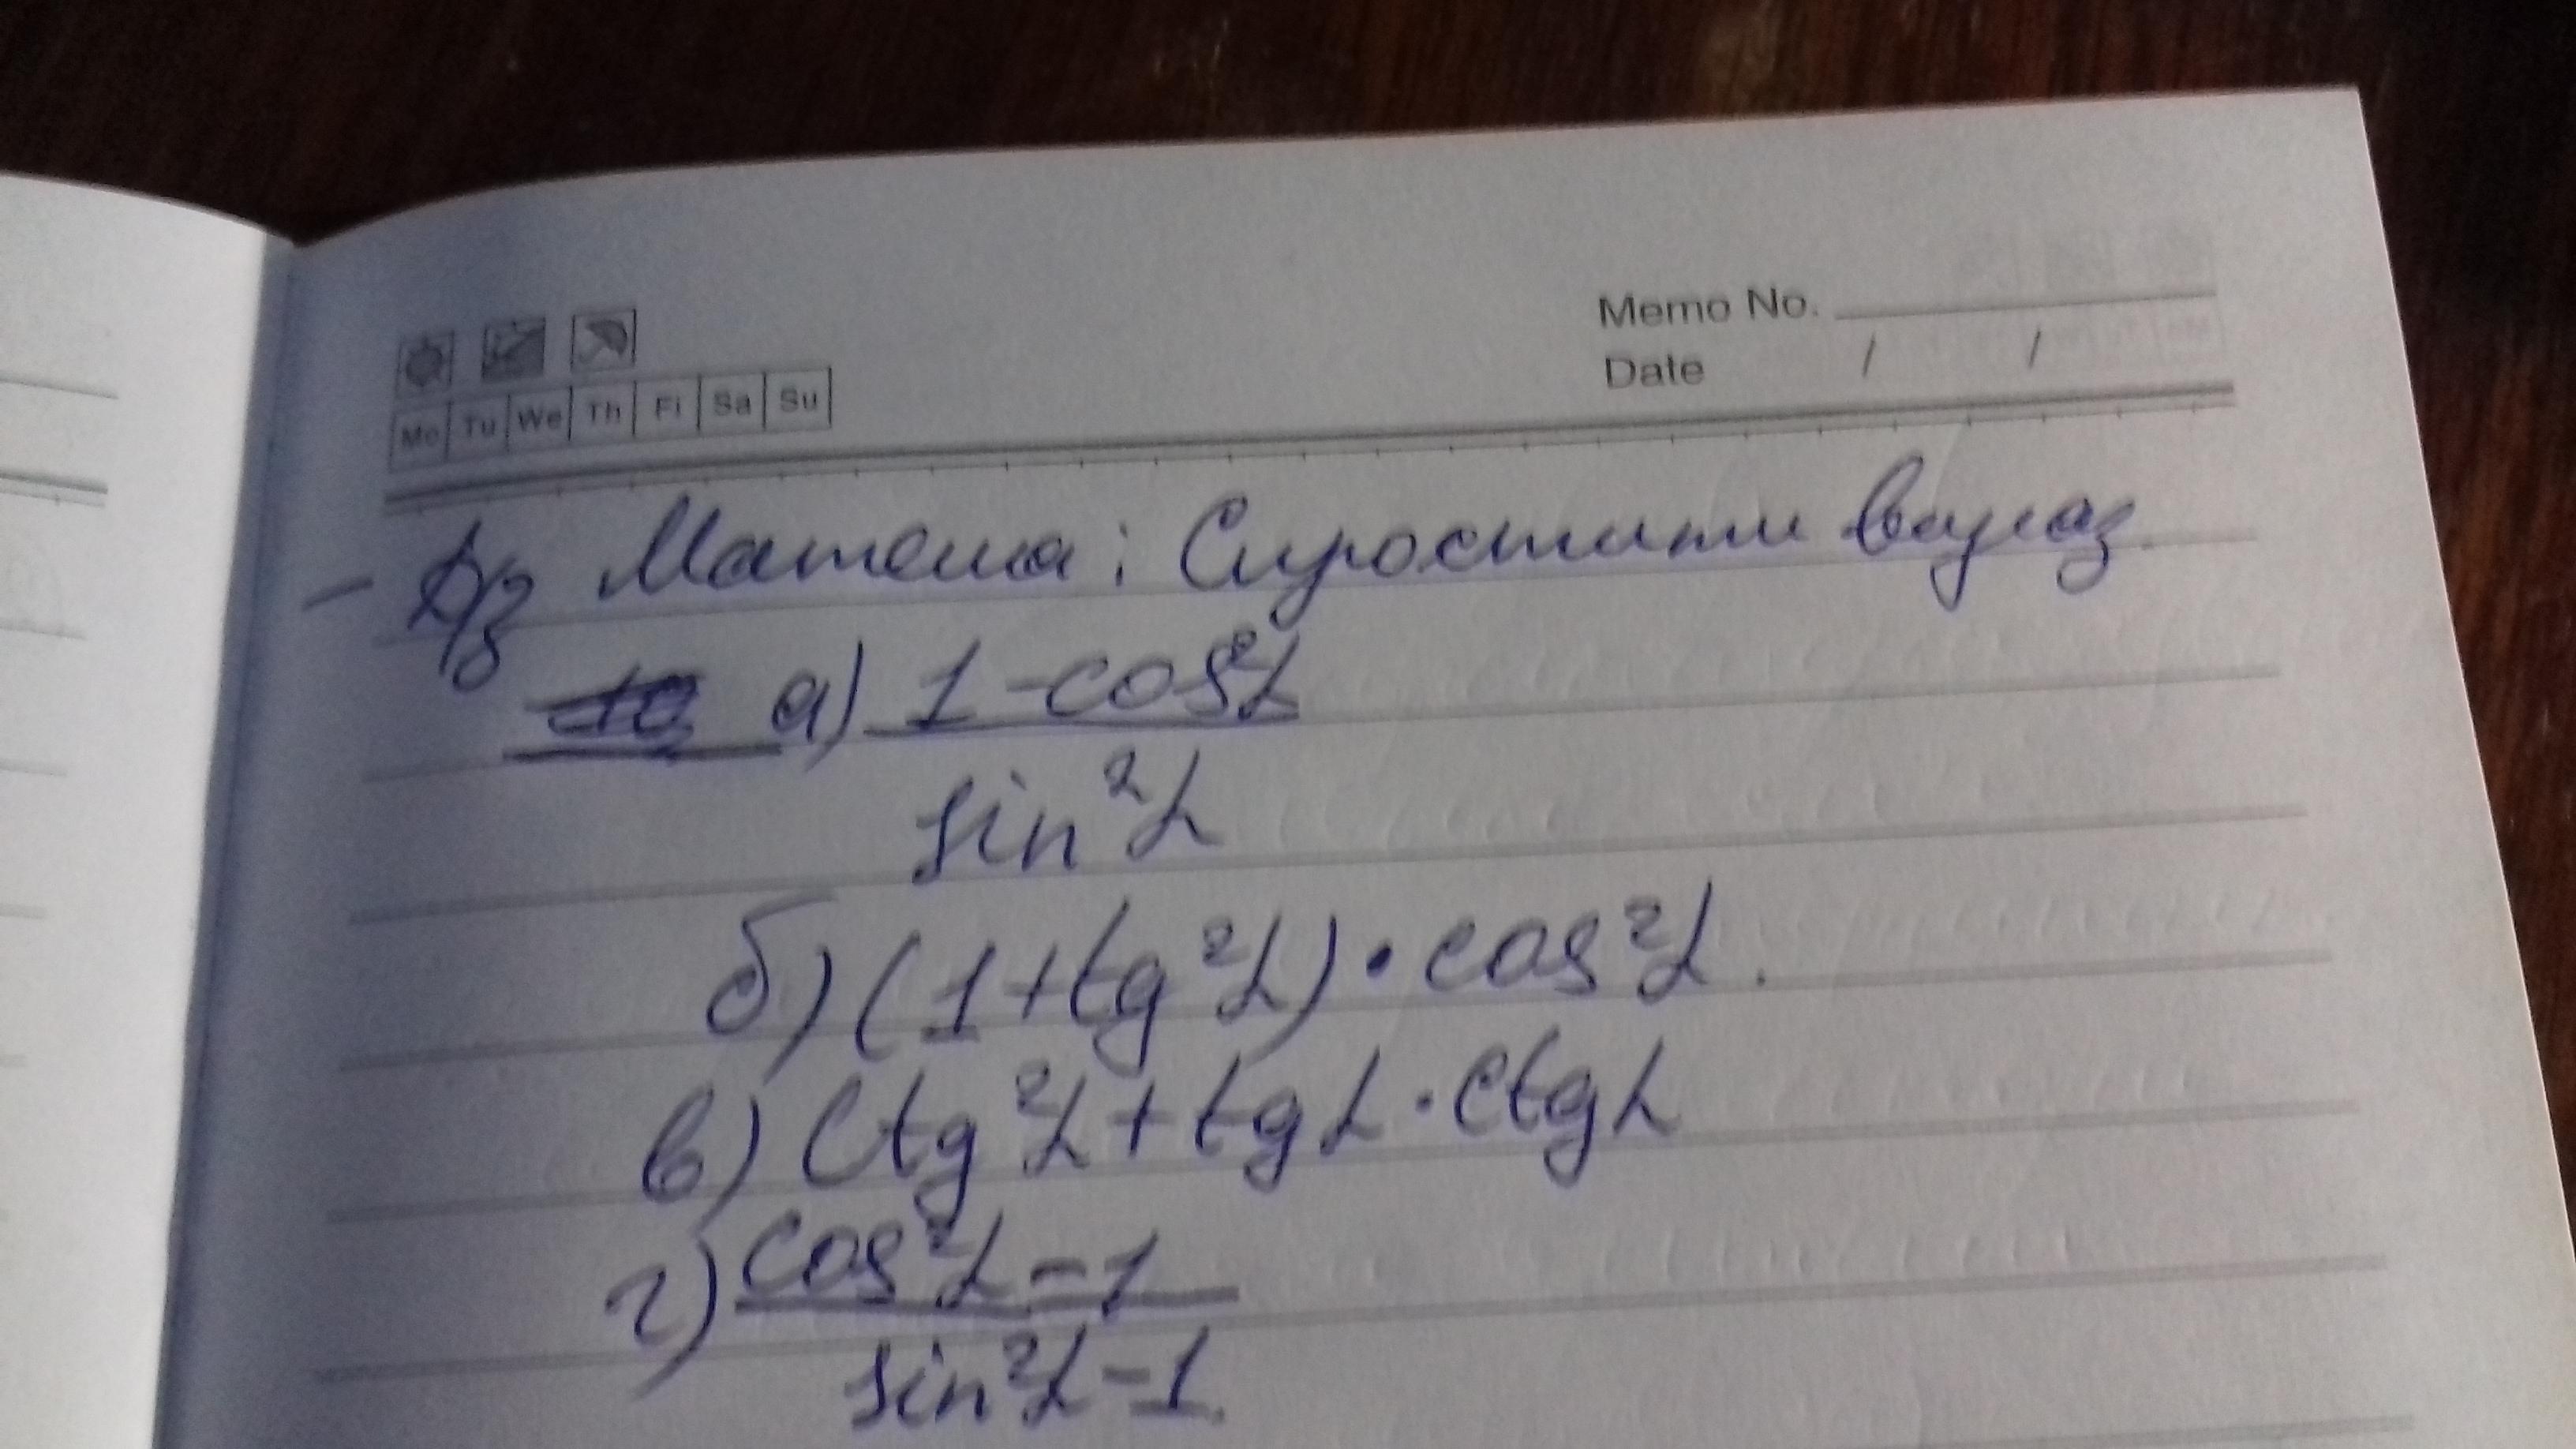 Memo No.
Date / /
Mo Tu We Th Fi Sa Su
– Д/з Матема: Спростити вираз.
а) 1 - cos²α
sin²α
б) (1 + tg²α) · cos²α.
в) Ctg²α + tgα · ctgα
г) cos²α - 1
sin²α - 1.